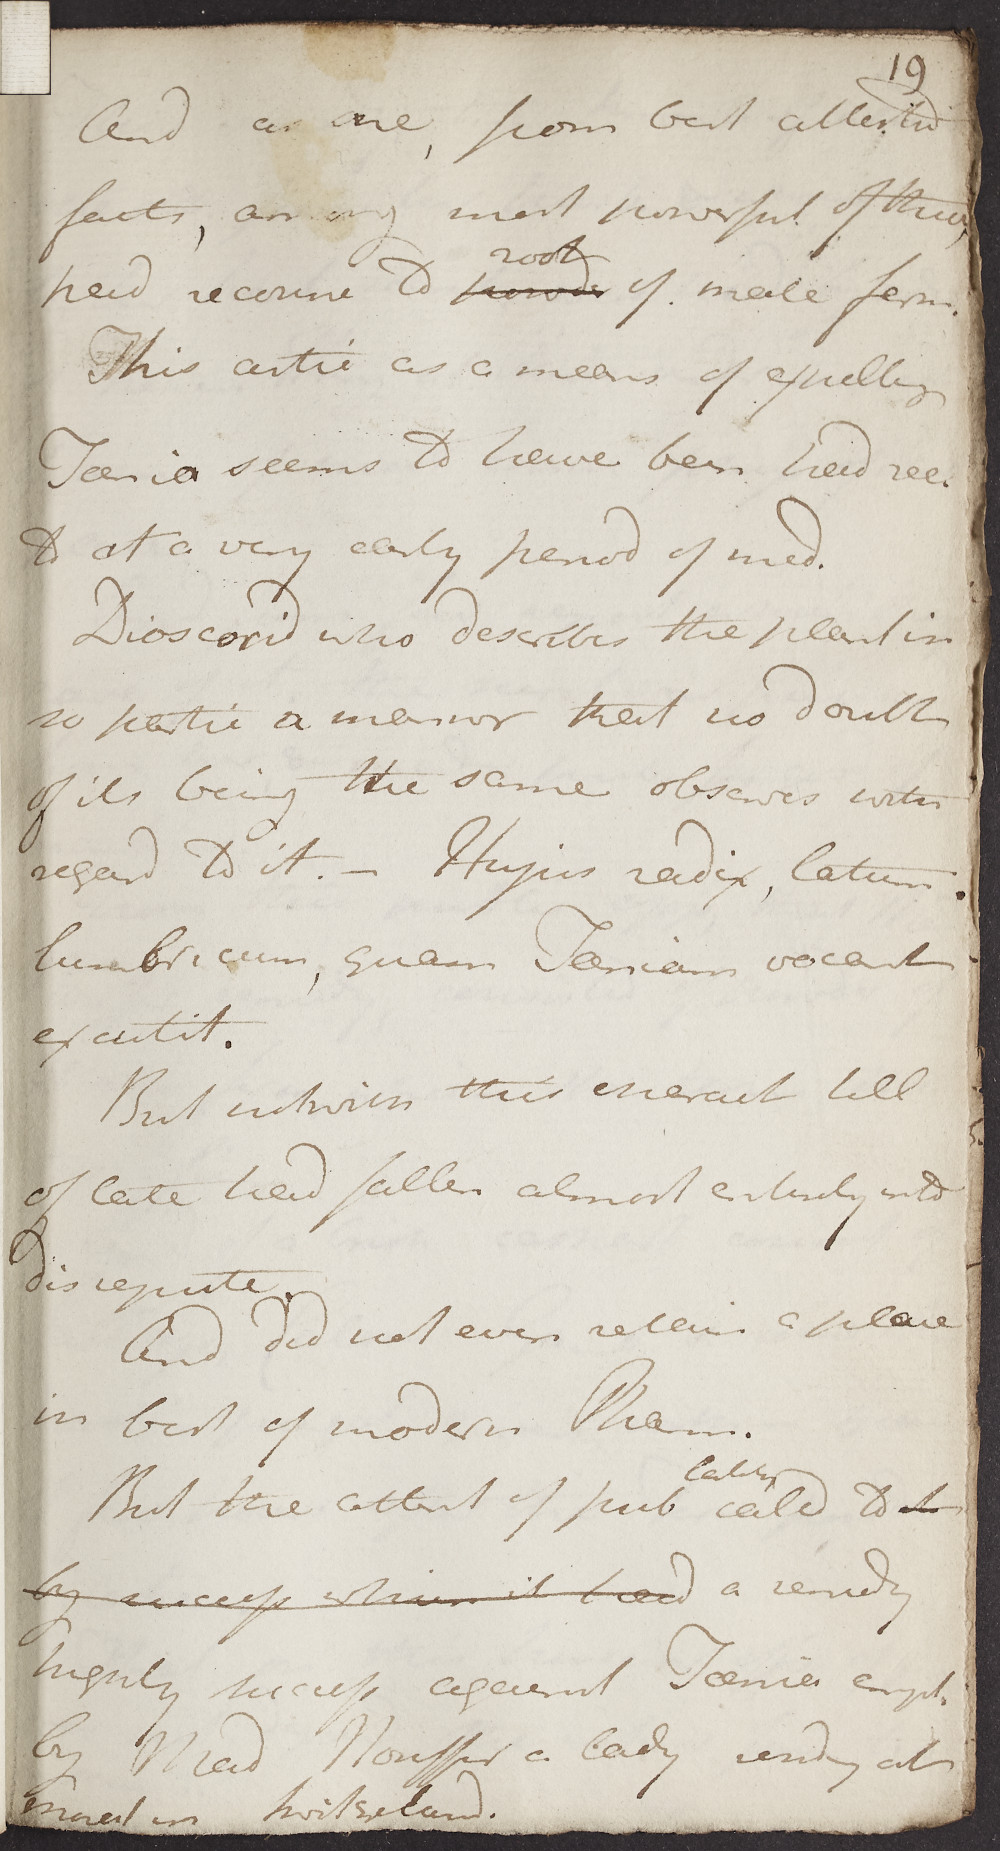 19
And as one, from best attested
facts, among most powerful of these,
had recourse to ~~powder~~ root of male fern.
This artic as a means of expelling
Taenia seems to have been had rec.
to at a very early period of med.
Dioscorid who describes the plant in
so partic a manner that no doubt
of its being the same observes with
regard to it. – Hujus radix, latum
lumbricum, quam Taeniam vocant
excutit.
But notwith this till
of late had fallen almost entirely into
disrepute.
And did not even retain a place
in best of modern Pharm.
But the attent of pub calld to
~~by success which it had~~ a remedy
highly success against Taenia empl.
by Mad Nouffer a lady at
in Switzerland.